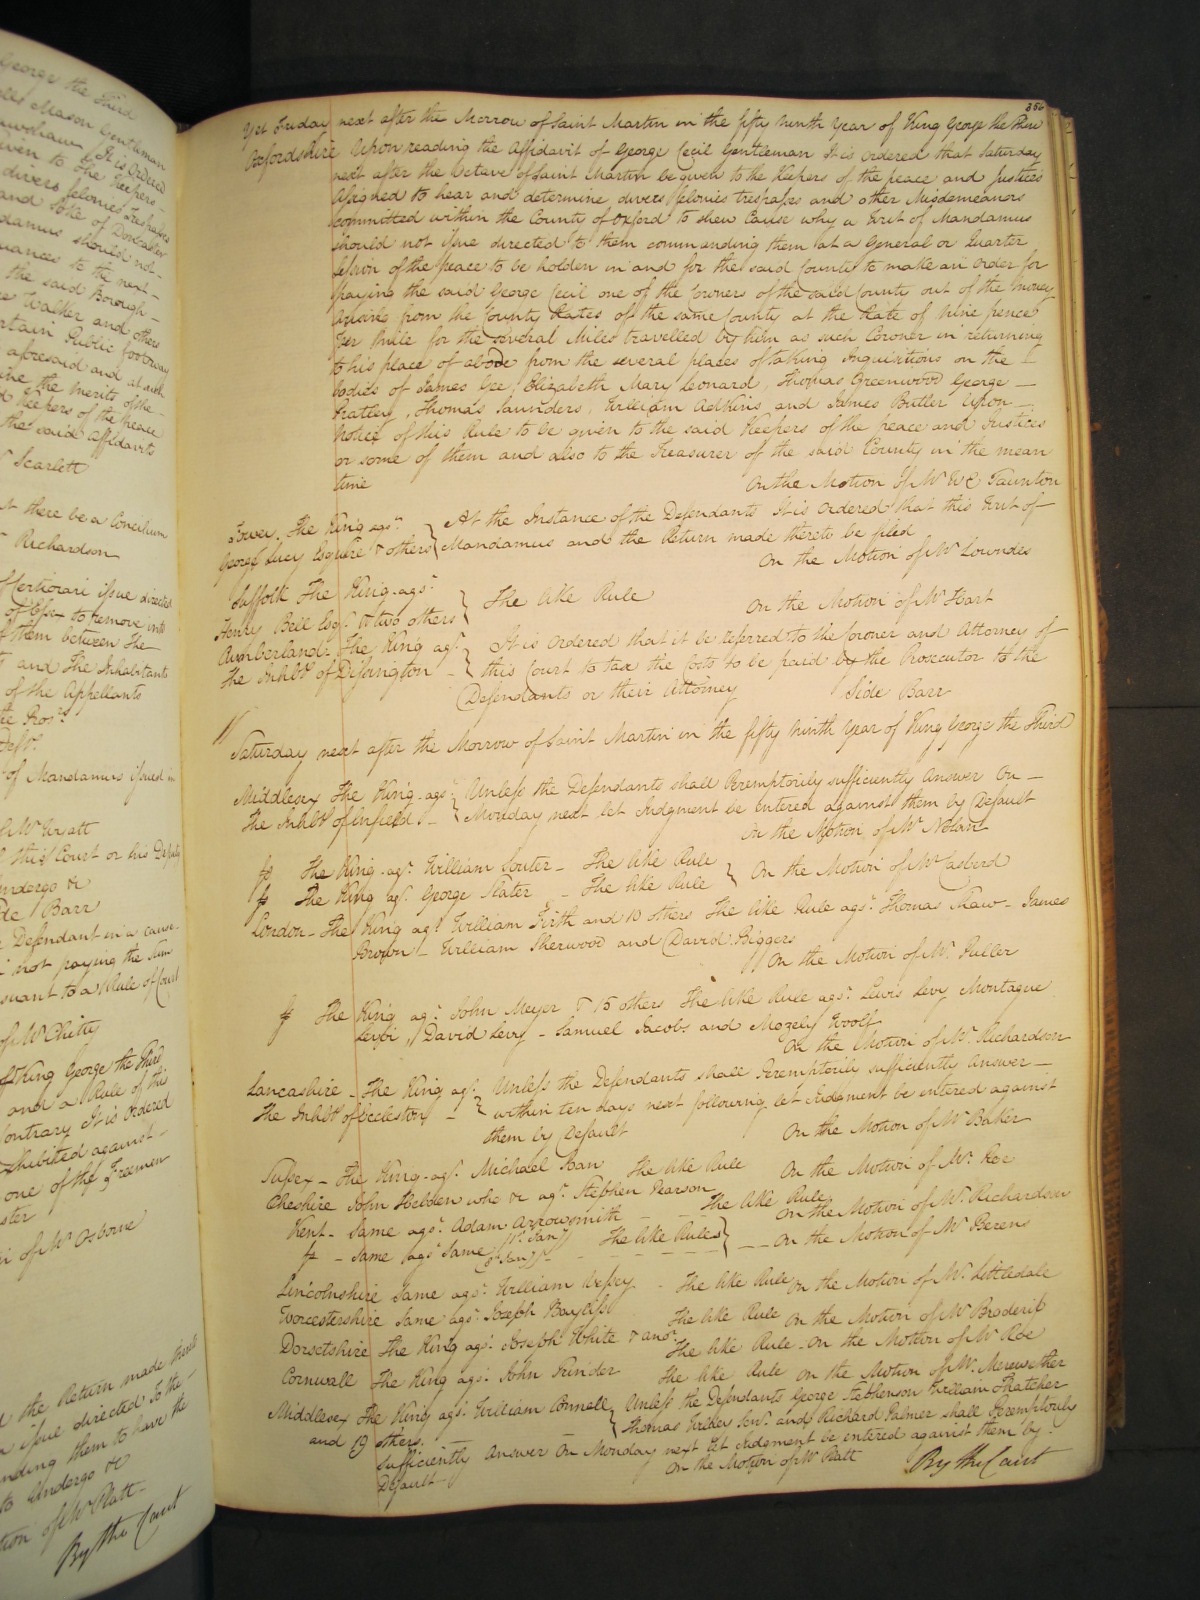 George the Third
Mason Gentleman
It is Ordered
given to the Keepers
divers felonies Trespasses
and Soke of Doncaster
damus should not
nuances to the next
the said Borough
Walker and others
certain Public footway
aforesaid and at such
the merits of the
Keepers of the peace
the said Affidavits
Mr Scarlett
there be a Concilium
Richardson
Certiorari issue directed
to remove into
of them between the
and the Inhabitants
of the Appellants
Defts.
of Mandamus issued in
Mr Wyatt
this Court or his Deputy
undergo &c
Side Barr
Defendant in a cause
not paying the Sum
pursuant to a Rule of Court
of Mr Chitty
King George the Third
and a Rule of this
Contrary It is Ordered
exhibited against
one of the Freemen
of Mr Osborne
the Return made thereto
issue directed to the
commanding them to have the
to undergo &c
Motion of Mr Platt
By the Court
356
Yet Friday next after the Morrow of Saint Martin in the fifty ninth Year of King George the Third
Oxfordshire Upon reading the Affidavit of George Cecil Gentleman It is Ordered that Saturday
next after the Octave of Saint Martin be given to the Keepers of the peace and Justices
Assigned to hear and determine divers felonies trespasses and other Misdemeanors
committed within the County of Oxford to shew Cause why a Writ of Mandamus
should not issue directed to them commanding them at a General or Quarter
Session of the peace to be holden in and for the said County to make an Order for
paying the said George Cecil one of the Coroners of the said County out of the money
arising from the County Rates of the same County at the Rate of Nine pence
per Mile for the several Miles travelled by him as such Coroner in returning
to his place of abode from the several places of taking Inquisitions on the
bodies of James Gee, Elizabeth Mary Leonard, Thomas Greenwood George
Prattley, Thomas Saunders, William Adkins and James Butler Upon
Notice of this Rule to be given to the said Keepers of the peace and Justices
or some of them and also to the Treasurer of the said County in the mean
time On the Motion of Mr W E Taunton
Tower. The King agst. At the Instance of the Defendants It is ordered that this Writ of
George Lucy Esquire & others Mandamus and the Return made thereto be filed
On the Motion of Mr Lowndes
Suffolk The King agst. The like Rule
Henry Bell Esqr. & two others On the Motion of Mr Hart
Cumberland The King agst. It is Ordered that it be referred to the Coroner and Attorney of
The Inhbts of Dissington this Court to tax the Costs to be paid by the Prosecutor to the
Defendants or their Attorney Side Barr
Saturday next after the Morrow of Saint Martin in the fifty ninth Year of King George the Third
Middlesex The King agst. Unless the Defendants shall Peremptorily sufficiently Answer On
The Inhbts of Enfield Monday next let Judgment be entered against them by Default
On the Motion of Mr Nolan
The King agst. William Souter The like Rule
The King agst. George Slater The like Rule On the Motion of Mr Casberd
London The King agst William Firth and 10 others The like Rule agst. Thomas Shaw James
Brown William Sherwood and David Biggers
On the Motion of Mr. Puller
The King agst. John Meyer & 15 others The like Rule agst. Lewis Levy Montague
Levoi, David Levy Samuel Jacobs and Mozely Woolf
On the Motion of Mr. Richardson
Lancashire The King agst. Unless the Defendants shall Peremptorily sufficiently Answer
The Inhbts of Eccleston within ten days next following let Judgment be entered against
them by Default On the Motion of Mr Baker
Sussex The King agst. Michael Bean The like Rule On the Motion of Mr. Roe
Cheshire John Hebden who &c agst. Stephen Pearson The like Rule On the Motion of Mr. Richardson
Kent Same agst. Adam Arrowsmith
Same agst Same The like Rules On the Motion of Mr Berens
Lincolnshire Same agst. William Vessey The like Rule On the Motion of Mr. Littledale
Worcestershire Same agst. Joseph Bayliss The like Rule On the Motion of Mr Broderip
Dorsetshire The King agst. Joseph White & anor. The like Rule On the Motion of Mr Roe
Cornwall The King agst. John Trinder The like Rule On the Motion of Mr. Merewether
Middlesex The King agst. William Connell Unless the Defendants George Stephenson William Thatcher
and 19 others. Thomas Senr. and Richard Palmer shall Peremptorily
sufficiently Answer On Monday next let Judgment be entered against them by
Default On the Motion of Mr Platt By the Court